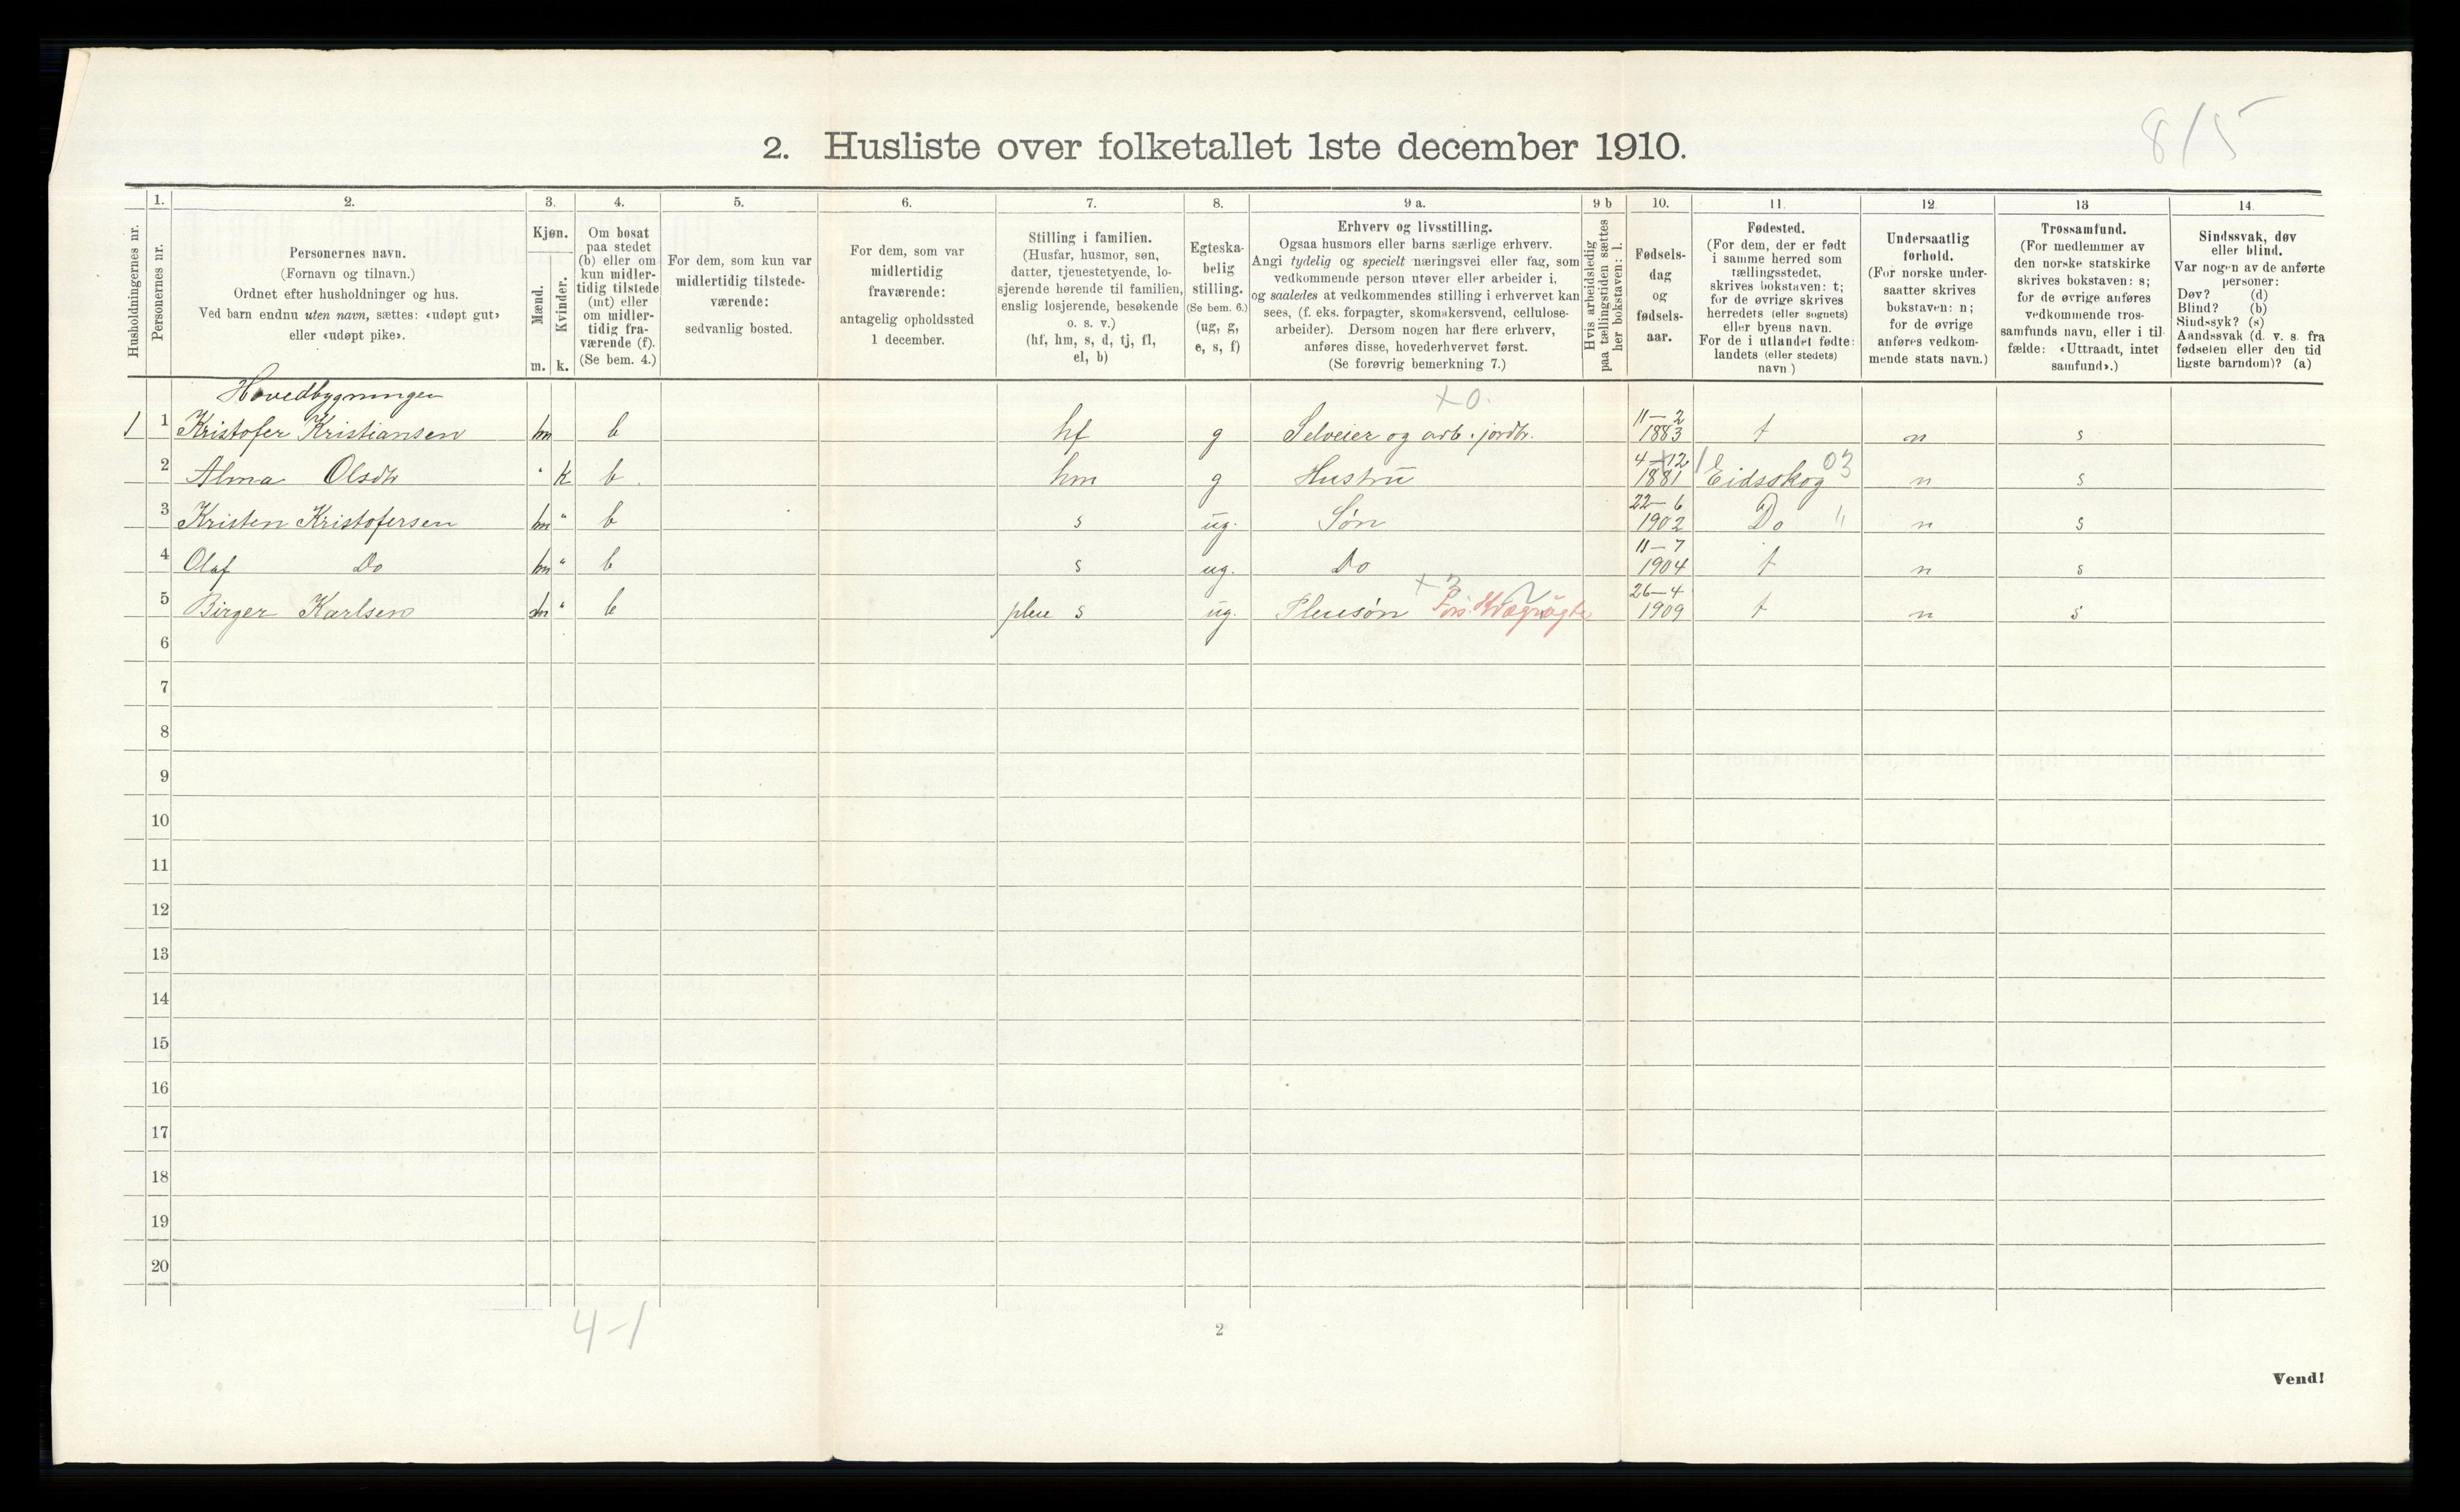 8/5
2. Husliste over folketallet 1ste december 1910.
Husholdningernes nr.
1.
Personernes nr.
2.
Personernes navn.
(Fornavn og tilnavn.)
Ordnet efter husholdninger og hus.
Ved barn endnu uten navn, sættes: «udøpt gut»
eller «udøpt pike».
3.
Kjøn.
Mænd. Kvinder.
m. k.
4.
Om bosat
paa stedet
(b) eller om
kun midler-
tidig tilstede
(mt) eller
om midler-
tidig fra-
værende (f).
(Se bem. 4.)
5.
For dem, som kun var
midlertidig tilstede-
værende:
sedvanlig bosted.
6.
For dem, som var
midlertidig
fraværende:
antagelig opholdssted
1 december.
7.
Stilling i familien.
(Husfar, husmor, søn,
datter, tjenestetyende, lo-
sjerende hørende til familien,
enslig losjerende, besøkende
o. s. v.)
(hf, hm, s, d, tj, fl,
el, b)
8.
Egteska-
belig
stilling.
(Se bem. 6.)
(ug, g,
e, s, f)
9 a.
Erhverv og livsstilling.
Ogsaa husmors eller barns særlige erhverv.
Angi tydelig og specielt næringsvei eller fag, som
vedkommende person utøver eller arbeider i,
og saaledes at vedkommendes stilling i erhvervet kan
sees, (f. eks. forpagter, skomakersvend, cellulose-
arbeider). Dersom nogen har flere erhverv,
anføres disse, hovederhvervet først.
(Se forøvrig bemerkning 7.)
9 b
Hvis arbeidsledig
paa tællingstiden sættes
her bokstaven: l.
10.
Fødsels-
dag
og
fødsels-
aar.
11.
Fødested.
(For dem, der er født
i samme herred som
tællingsstedet,
skrives bokstaven: t;
for de øvrige skrives
herredets (eller sognets)
eller byens navn.
For de i utlandet fødte:
landets (eller stedets)
navn.)
12.
Undersaatlig
forhold.
(For norske under-
saatter skrives
bokstaven: n;
for de øvrige
anføres vedkom-
mende stats navn.)
13
Trossamfund.
(For medlemmer av
den norske statskirke
skrives bokstaven: s;
for de øvrige anføres
vedkommende tros-
samfunds navn, eller i til-
fælde: «Uttraadt, intet
samfund».)
14.
Sindssvak, døv
eller blind.
Var nogen av de anførte
personer:
Døv? (d)
Blind? (b)
Sindssyk? (s)
Aandssvak (d. v. s. fra
fødselen eller den tid
ligste barndom)? (a)
Hovedbygningen
+ 0.
1 1 Kristofer Kristiansen m b hf g Selveier og arb. jordbr. 11-2 1883 t n s
2 Alma Olsdtr " k b. hm g Hustru 4-12 1881 Eidsskog 03 n s
3 Kristen Kristofersen m " b s ug. Søn 22-6 1902 Do " n s
4 Olaf Do m " b s ug. Do 11-7 1904 t n s
5 Birger Karlsen m " b pleie s ug. Pleiesøn 26-4 1909 t n s
6
7
8
9
10
11
12
13
14
15
16
17
18
19
20
4-1
2
Vend!